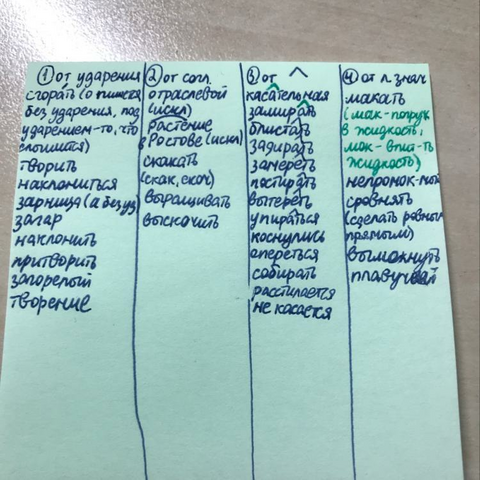 ① от ударения
сгорать (о пишется
без ударения, под
ударением-то, что
слышится)
творить
наклониться
зарница (а без уд)
загар
наклонить
притворить
загорелый
творение
② от согл.
отраслевой
(искл)
растение
Ростове (искл)
скакать
(скак, скоч)
выращивать
выскочить
③ от ^
касательная
замирать
блистать
задирать
замереть
постирать
вытереть
упираться
коснулись
опереться
собирать
расстилается
не касается
④ от л. знач
макать
(мак-погруж
в жидкость,
мок-впит-ть
жидкость)
непромок-мый
сровнять
(сделать ровным
прямым)
вымокнуть
плавучей